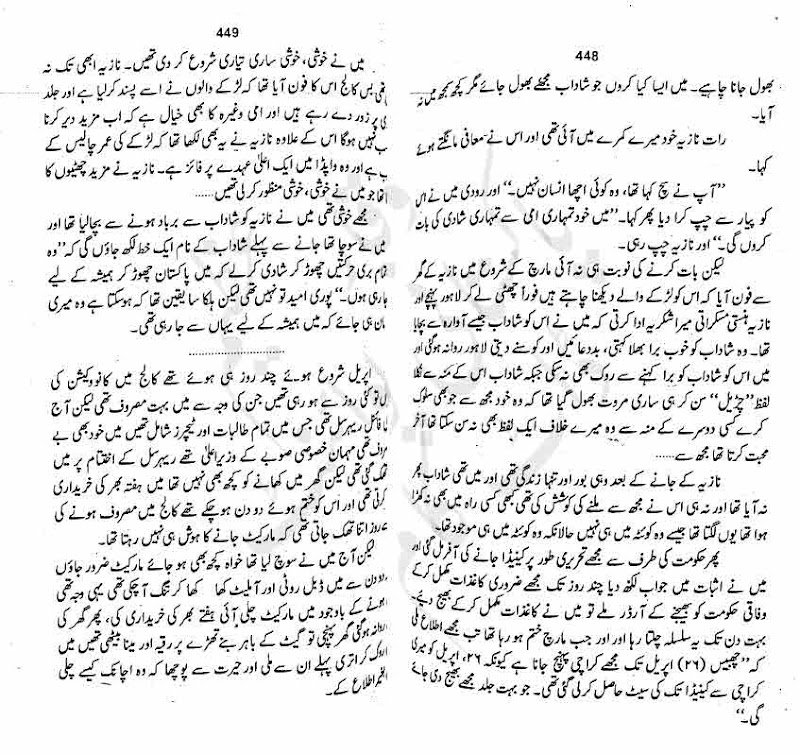 448
بھول جانا چاہیے۔ میں ایسا کیا کروں جو شاداب مجھے بھول جائے مگر کچھ سمجھ میں نہ
آیا۔
رات نازیہ خود میرے کمرے میں آئی تھی اور اس نے معافی مانگتے ہوئے
کہا۔
”آپ نے سچ کہا تھا، وہ کوئی اچھا انسان نہیں۔“ اور رودی میں نے اس
کو پیار سے چپ کرا دیا پھر کہا۔ ”میں خود تمہاری امی سے تمہاری شادی کی بات
کروں گی۔“ اور نازیہ چپ رہی۔
لیکن بات کرنے کی نوبت ہی نہ آئی مارچ کے شروع میں نازیہ کے گھر
سے فون آیا کہ اس کو لڑکے والے دیکھنا چاہتے ہیں فوراً چھٹی لے کر لاہور پہنچے اور
نازیہ ہنستی مسکراتی میرا شکریہ ادا کرتی کہ میں نے اس کو شاداب جیسے آوارہ سے بچایا
تھا۔ وہ شاداب کو خوب برا بھلا کہتی، بددعائیں اور کوسنے دیتی لاہور روانہ ہو گئی اور
میں اس کو شاداب کو برا کہنے سے روک بھی نہ سکی جبکہ شاداب اس کے منہ سے نکلا
لفظ ”چڑیل“ سن کر ہی ساری مروت بھول گیا تھا کہ وہ خود مجھ سے جو بھی سلوک
کرے کسی دوسرے کے منہ سے وہ میرے خلاف ایک لفظ بھی نہ سن سکتا تھا آخر
محبت کرتا تھا مجھ سے......
نازیہ کے جانے کے بعد وہی بور اور تنہا زندگی تھی اور میں تھی شاداب پھر
نہ آیا تھا اور نہ ہی اس نے مجھ سے ملنے کی کوشش کی تھی کبھی کسی راہ میں بھی نہ کھڑا
ہوا تھا یوں لگتا تھا جیسے وہ کوئٹہ میں ہی نہیں حالانکہ وہ کوئٹہ میں ہی موجود تھا۔
پھر حکومت کی طرف سے مجھے تحریری طور پر کینیڈا جانے کی آفر مل گئی اور
میں نے اثبات میں جواب لکھ دیا چند روز تک مجھے ضروری کاغذات مکمل کر کے
وفاقی حکومت کو بھیجنے کے آرڈر ملے تو میں نے کاغذات مکمل کر کے بھیج دیئے۔
بہت دن تک یہ سلسلہ چلتا رہا اور اور جب مارچ ختم ہو رہا تھا تب مجھے اطلاع ملی
کہ ”چھبیس (۲۶) اپریل تک مجھے کراچی پہنچ جانا ہے کیونکہ ۲۶، اپریل کو میری
کراچی سے کینیڈا تک کی سیٹ حاصل کر لی گئی تھی۔ جو بہت جلد مجھے بھیج دی جائے
گی۔“
449
میں نے خوشی، خوشی ساری تیاری شروع کر دی تھیں۔ نازیہ ابھی تک نہ
بس کالج اس کا فون آیا تھا کہ لڑکے والوں نے اسے پسند کر لیا ہے اور جلد
پر زور دے رہے ہیں اور امی وغیرہ کا بھی خیال ہے کہ اب مزید دیر کرنا
نہیں ہوگا اس کے علاوہ نازیہ نے یہ بھی لکھا تھا کہ لڑکے کی عمر چالیس کے
ہے اور وہ واپڈا میں ایک اعلیٰ عہدے پر فائز ہے۔ نازیہ نے مزید چھٹیوں کا
تھا جو میں نے خوشی، خوشی منظور کر لی تھیں......
مجھے خوشی تھی میں نے نازیہ کو شاداب سے برباد ہونے سے بچا لیا تھا اور
میں نے سوچا تھا جانے سے پہلے شاداب کے نام ایک خط لکھ جاؤں گی کہ ”وہ
تمام بری حرکتیں چھوڑ کر شادی کر لے کہ میں پاکستان چھوڑ کر ہمیشہ کے لیے
جا رہی ہوں۔“ پوری امید تو نہیں تھی لیکن ہلکا سا یقین تھا کہ ہو سکتا ہے وہ میری
مان ہی جائے کہ میں ہمیشہ کے لیے یہاں سے جا رہی تھی۔
..............................
اپریل شروع ہوئے چند روز ہی ہوئے تھے کالج میں کانووکیشن کی
تو کئی روز سے ہو رہی تھیں جن کی وجہ سے میں بہت مصروف تھی لیکن آج
فائنل ریہرسل تھی جس میں تمام طالبات اور ٹیچرز شامل تھیں میں خود بھی بے
تھی مہمان خصوصی صوبے کے وزیر اعلیٰ تھے ریہرسل کے اختتام پر میں
تھک گئی تھی لیکن گھر میں کھانے کو کچھ بھی نہیں تھا میں ہفتہ بھر کی خریداری
کرتی تھی اور اس کو ختم ہوئے دو دن ہو چکے تھے کالج میں مصروف ہونے کی
روز اتنا تھک جاتی تھی کہ مارکیٹ جانے کا ہوش ہی نہیں رہتا تھا۔
لیکن آج میں نے سوچ لیا تھا خواہ کچھ بھی ہو جائے مارکیٹ ضرور جاؤں
دن سے میں ڈبل روٹی اور آملیٹ کھا کھا کر تنگ آ چکی تھی یہی وجہ تھی
ہونے کے باوجود میں مارکیٹ چلی آئی ہفتے بھر کی خریداری کی، پھر گھر کی
روانہ ہو گئی گھر پہنچی تو گیٹ کے باہر بنے تھڑے پر رقیہ اور مینا بیٹھی تھیں میں
روک کر اتری پہلے ان سے ملی اور حیرت سے پوچھا کہ وہ اچانک کیسے چلی
بغیر اطلاع کے۔